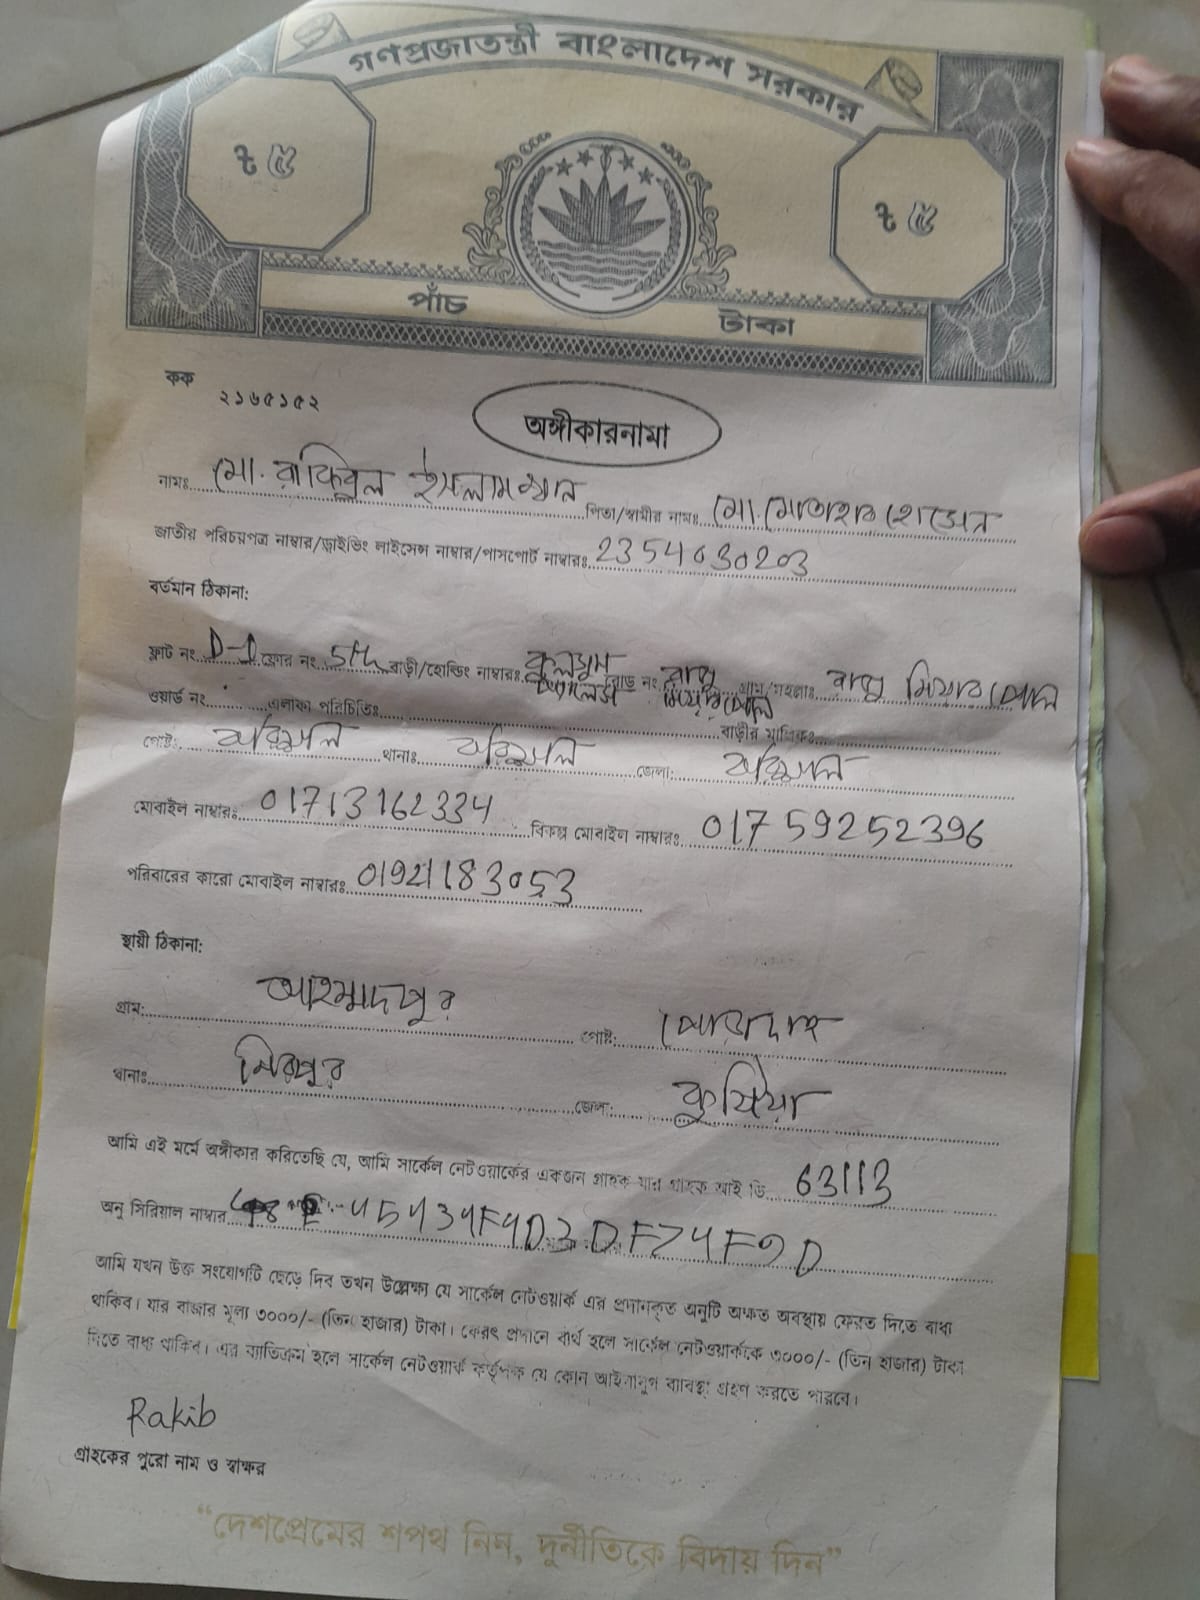 গণপ্রজাতন্ত্রী বাংলাদেশ সরকার
৳ ৫
৳ ৫
পাঁচ টাকা
কক
২১৬৫১৫২
অঙ্গীকারনামা
নামঃ মো. রাকিবুল ইসলাম খান পিতা/স্বামীর নামঃ মো. মোতাহার হোসেন
জাতীয় পরিচয়পত্র নাম্বার/ড্রাইভিং লাইসেন্স নাম্বার/পাসপোর্ট নাম্বারঃ 2354030203
বর্তমান ঠিকানা:
ফ্লাট নং D-1 ফ্লোর নং 5th বাড়ী/হোল্ডিং নাম্বারঃ কুলসুম রোড নং গ্রাম/মহল্লাঃ
ওয়ার্ড নং এলাকা পরিচিতিঃ বাড়ীর মালিকঃ
পোষ্ট: বরিশাল থানাঃ বরিশাল জেলা: বরিশাল
মোবাইল নাম্বারঃ 01713162334 বিকল্প মোবাইল নাম্বারঃ 01759252396
পরিবারের কারো মোবাইল নাম্বারঃ 01921183053
স্থায়ী ঠিকানা:
গ্রাম: আহম্মাদপুর পোষ্ট: পোড়াদাহ
থানাঃ মিরপুর জেলা: কুষ্টিয়া
আমি এই মর্মে অঙ্গীকার করিতেছি যে, আমি সার্কেল নেটওয়ার্কের একজন গ্রাহক যার গ্রাহক আই ডি 63113
অনু সিরিয়াল নাম্বার
আমি যখন উক্ত সংযোগটি ছেড়ে দিব তখন উল্লেক্ষ্য যে সার্কেল নেটওয়ার্ক এর প্রদানকৃত অনুটি অক্ষত অবস্থায় ফেরত দিতে বাধ্য
থাকিব। যার বাজার মূল্য ৩০০০/- (তিন হাজার) টাকা। ফেরৎ প্রদানে ব্যর্থ হলে সার্কেল নেটওয়ার্ককে ৩০০০/- (তিন হাজার) টাকা
দিতে বাধ্য থাকিব। এর ব্যতিক্রম হলে সার্কেল নেটওয়ার্ক কর্তৃপক্ষ যে কোন আইনানুগ ব্যবস্থা গ্রহণ করতে পারবে।
Rakib
গ্রাহকের পুরো নাম ও স্বাক্ষর
“দেশপ্রেমের শপথ নিন, দুর্নীতিকে বিদায় দিন”